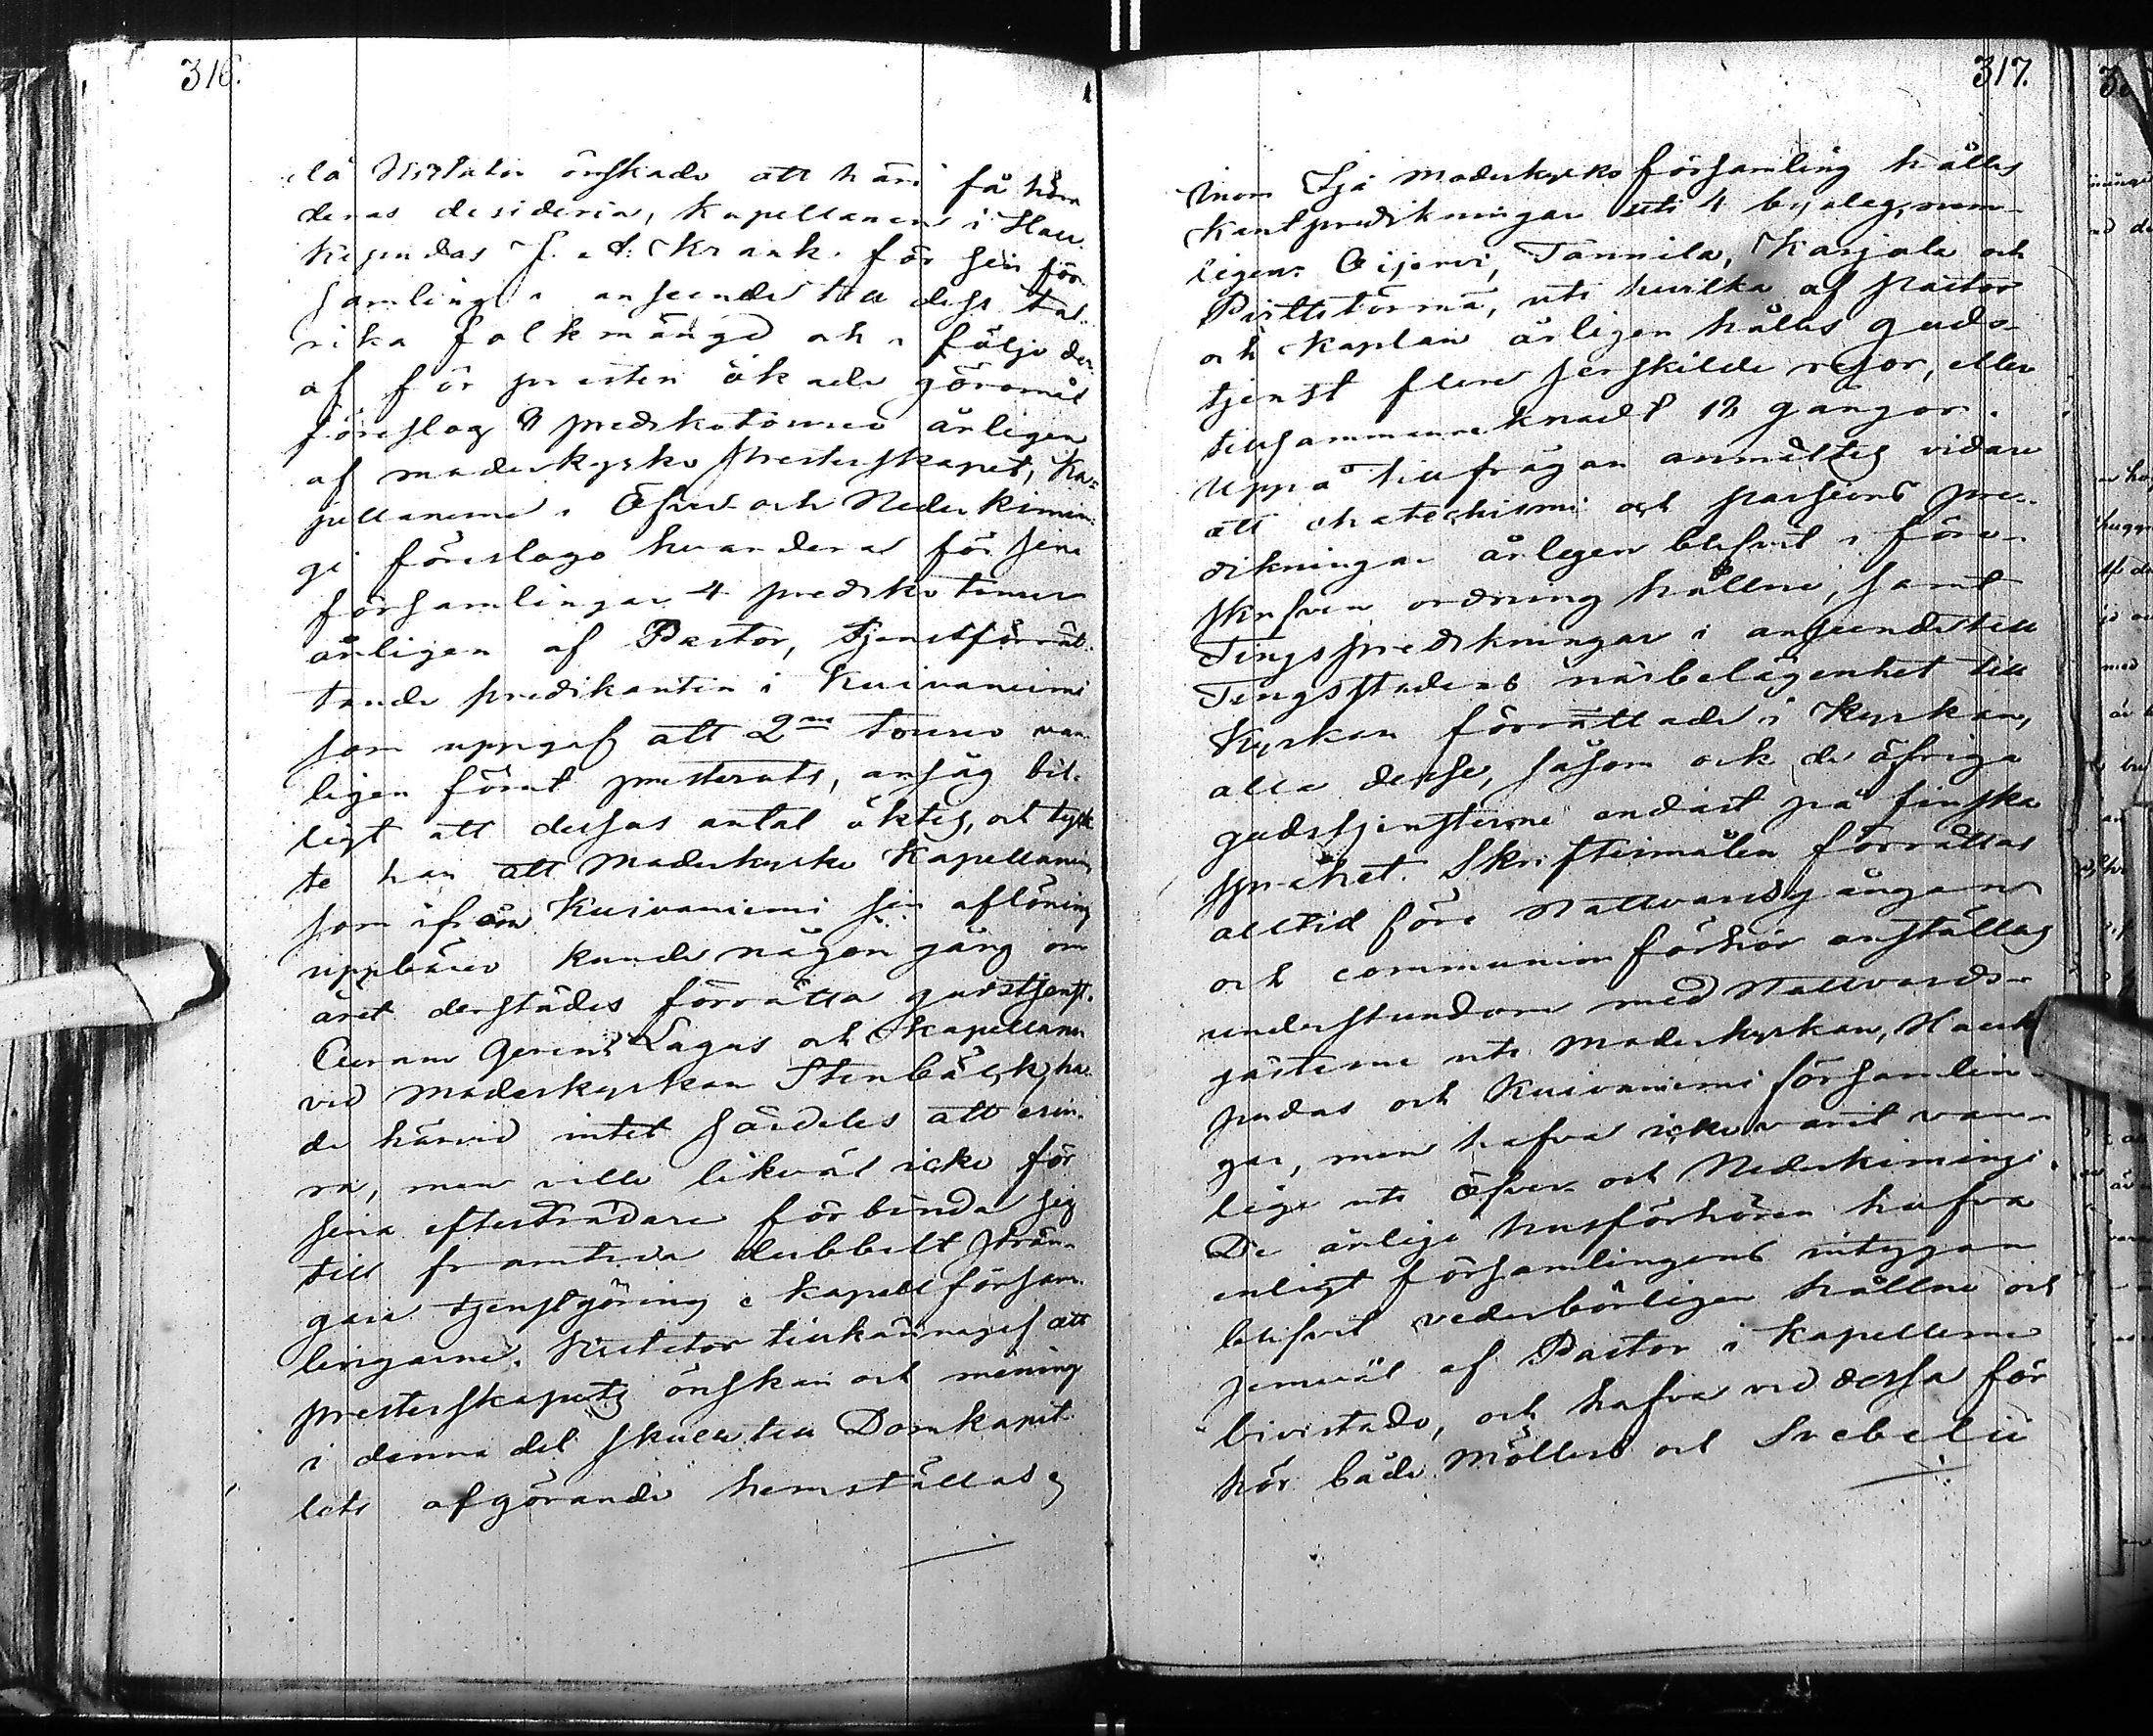 316.
då Visitator önskade att häri få höra
deras desideria, Kapellanen i Hau-
kipudas f. d. Krank för sin för
samling i anseende till dess tal-
rika folkmängd och i följe der-
af för presten ökade göromål
föreslog 8 predikotourer årligen
af moderkyrko Presterskapet, Ka-
pellanerne i Öfver- och Nederkimin-
gi föreslogo hvardera för sina
församlingar 4 predikotourer
årligen af Pastor, tjenstförrät-
tande predikanten i Kuivaniemi
som uppgaf att 2ne tourer van-
ligen förut presterats, ansåg bil-
ligt att dessas antal öktes, och tyck
te han att Moderkyrko Kapellanen
som ifrån Kuivaniemi sin aflöning
uppbärer kunde någon gång om
året derstädes förrätta gudstjenst.
Curam Gerens Lagus och Kapellanen
vid Moderkyrkan Stenbäck, ha-
de härvid intet särdeles att erin-
ra, men ville likväl icke för
sina efterträdare förbinda sig
till framtida dubbelt strän-
gare tjenstgöring i Kapell försam-
lingarne. Visitator tillkännagaf att
presterskapets önskan och mening
i denna del skulle till Domkapit-
lets afgörande hemställas,
317.
Inom Ijo Moderkyrko församling hålles
Kantpredikningar uti 4 byalag, nem-
ligen: Oijervi, Tannila, Karjala och
Pirttitörmä, uti hvilka af Pastor
och Kaplan årligen hålles guds-
tjenst flere serskilde resor, eller
tillsammanräknadt 12 gångor.
Uppå tillfrågan anmältes vidare
att chatechismi och passions pre-
dikningar årligen blifvit i före-
skrifven ordning hållne, samt
Tingspredikningar i anseende till
Tingsstadens närbelägenhet till
Kyrkan förrättade i Kyrkan,
alla desse, såsom ock de öfriga
gudstjensterne endast på finska
språket. Skriftermålen förrättas
alltid före Nattvardsgången
och communion förhör anställas
understundom med Nattvards-
gästerne uti Moderkyrkan, Hauki
pudas och Kuivaniemi församlin-
gar, men hafva icke varit van-
lige uti Öfver- och Nederkimingi.
De årlige husförhören hafva
enligt församlingens intygan
blifvit vederbörligen hållne och
jemväl af Pastor i Kapellerne
bivistade, och hafva vid dessa för
hör både Möllers och Svebelii